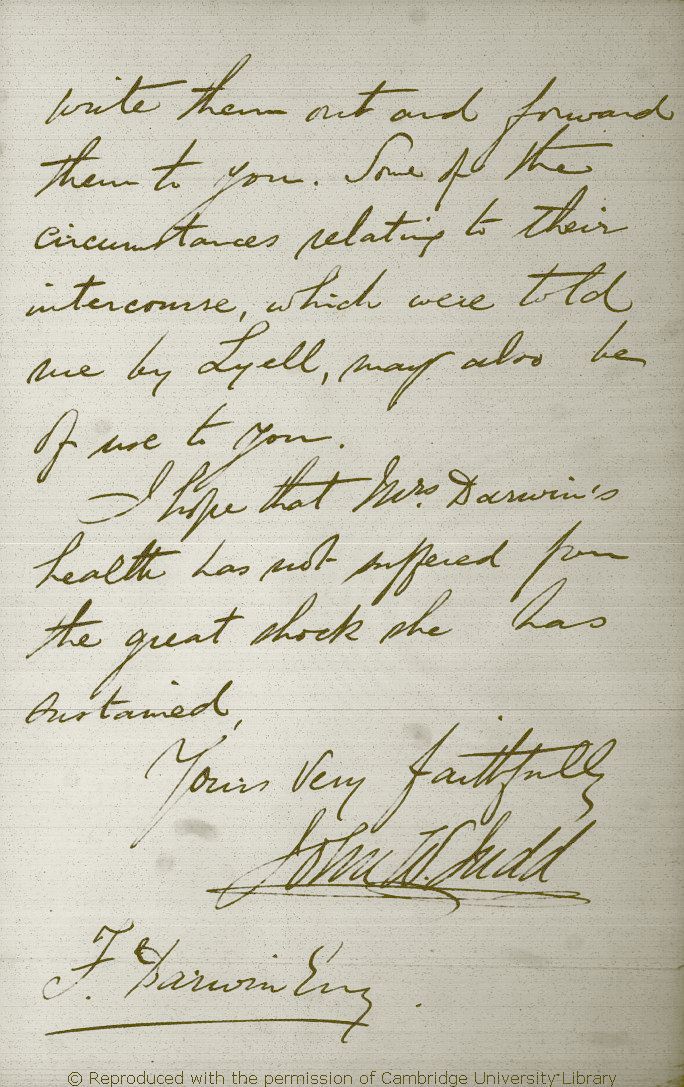 write them out and forward
them to you. Some of the
circumstances relating to their
intercourse, which were told
me by Lyell, may also be
of use to you.
I hope that Mrs. Darwin's
health has not suffered from
the great shock she has
sustained,
Yours very faithfully
John W. Judd
F. Darwin Esq.
© Reproduced with the permission of Cambridge University Library